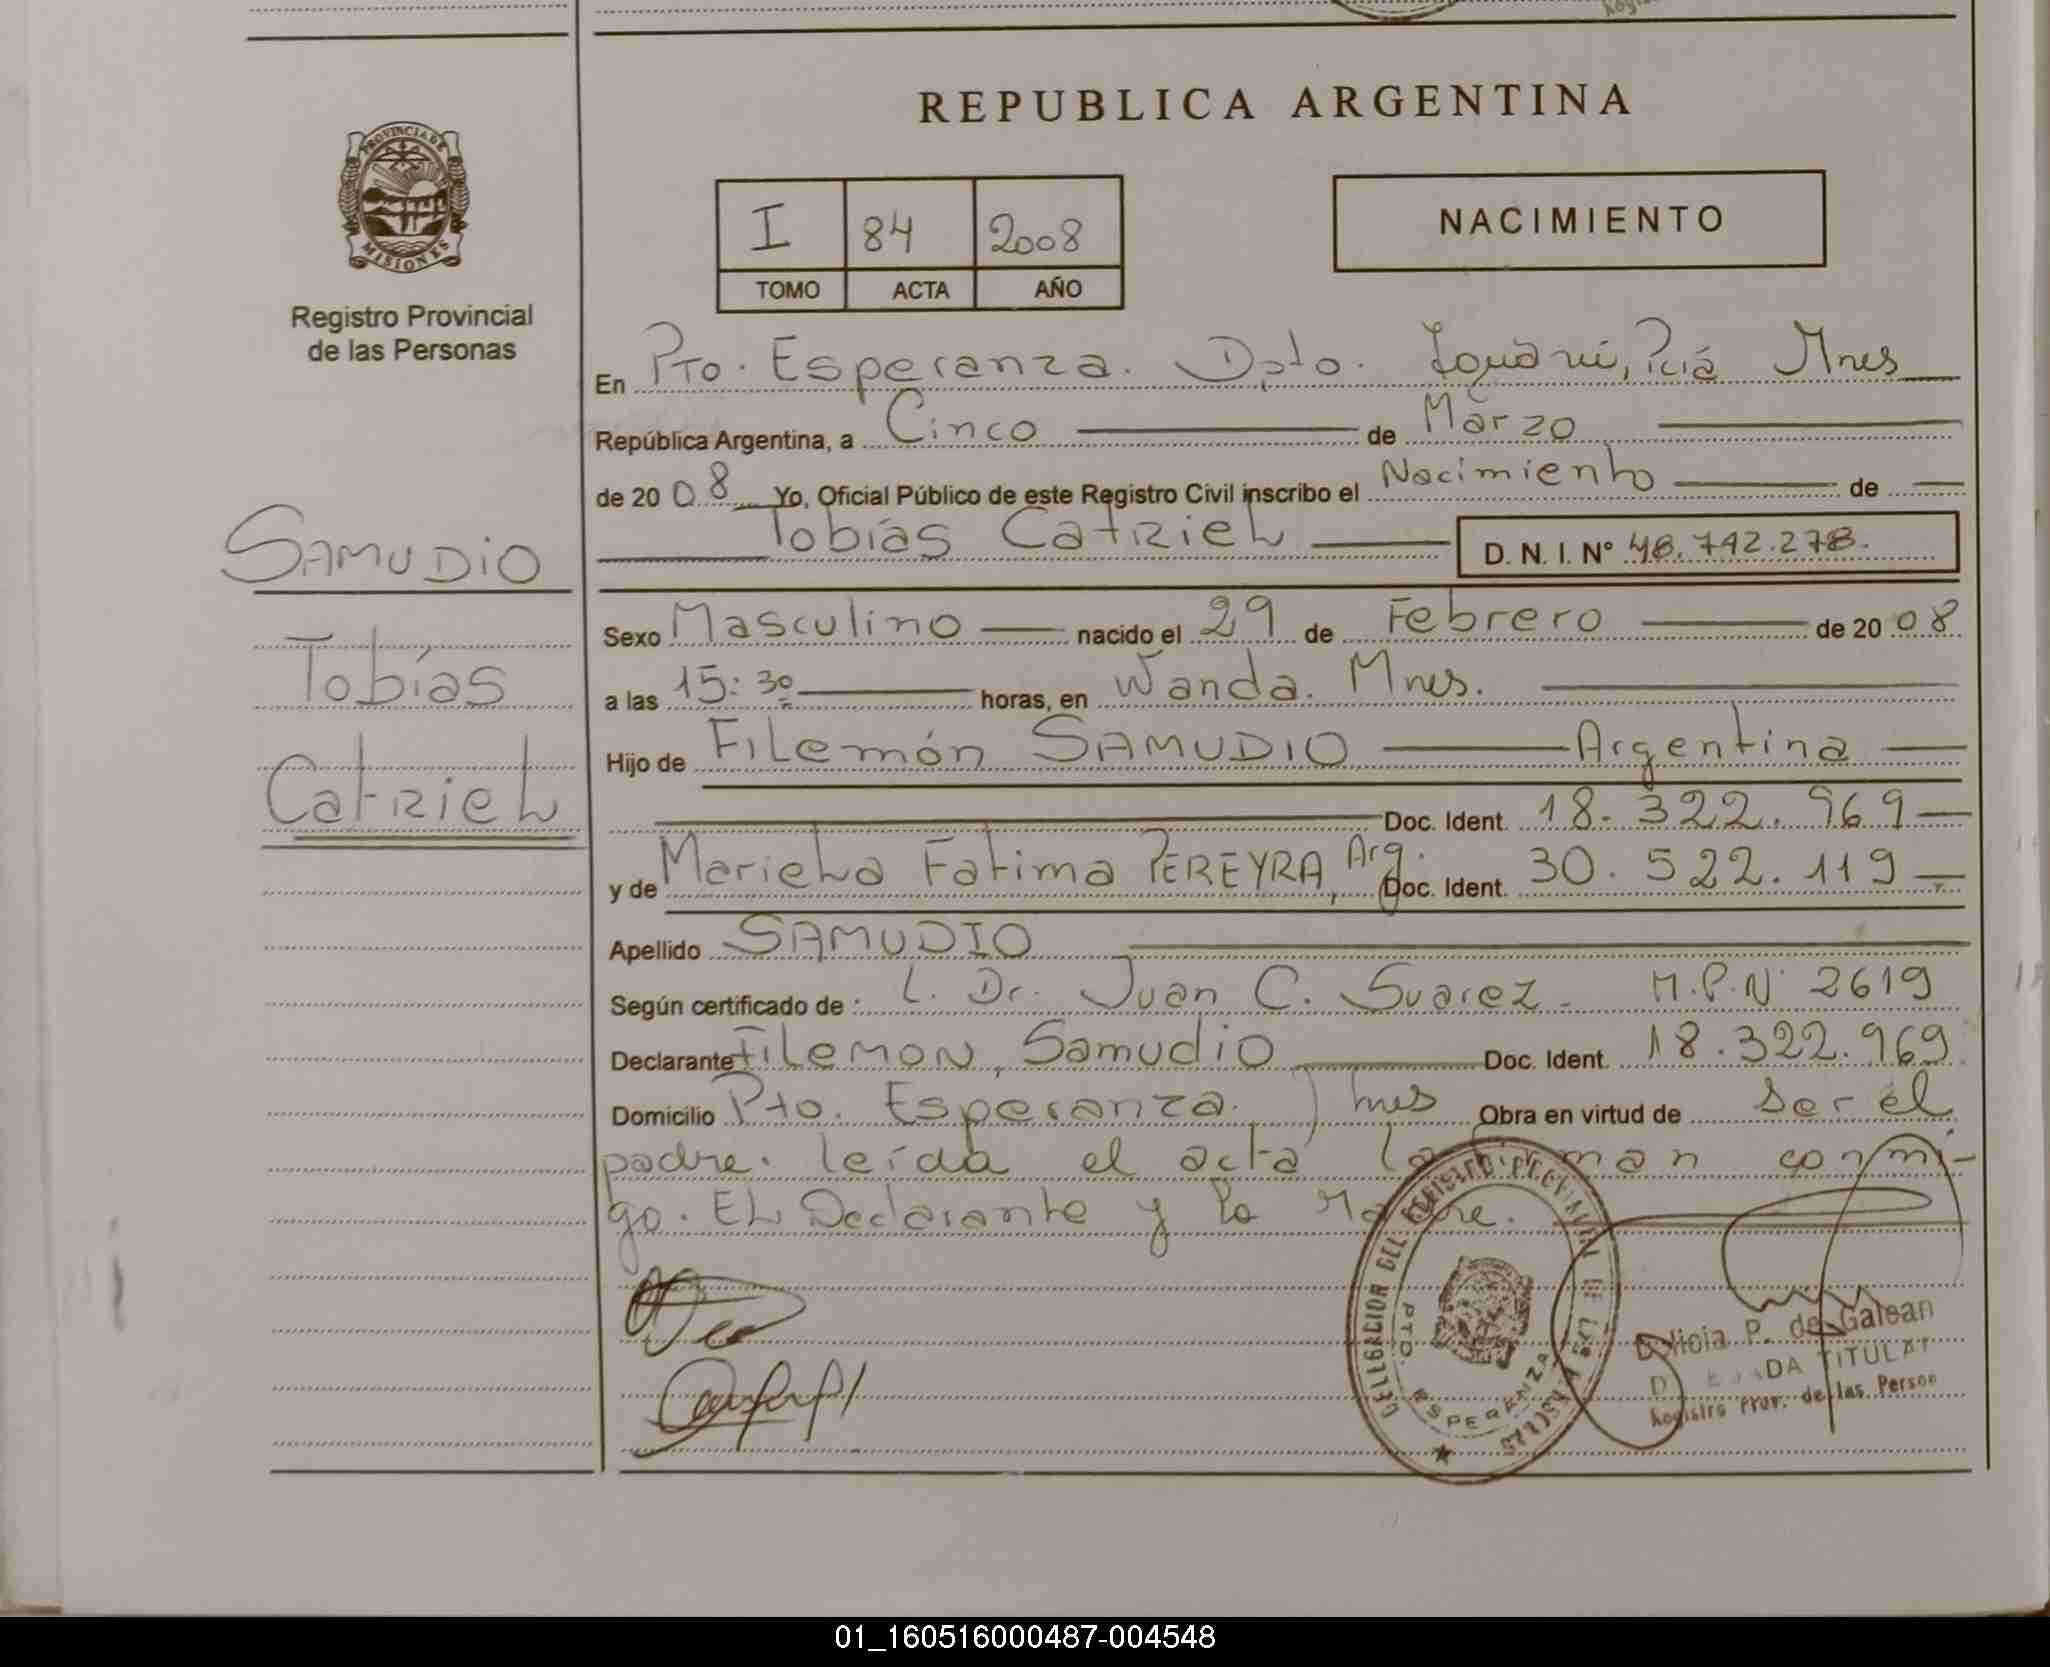 REPUBLICA ARGENTINA
PROVINCIA DE
MISIONES
Registro Provincial
de las Personas
I 84 2008
TOMO ACTA AÑO
NACIMIENTO
En Pto. Esperanza. Dpto. Iguazú, Pciá Mnes
República Argentina, a Cinco de Marzo
de 2008 Yo, Oficial Público de este Registro Civil inscribo el Nacimiento de
Tobías Catriel D. N. I. Nº 48.742.278.
SAMUDIO
Tobías
Catriel
Sexo Masculino nacido el 29 de Febrero de 2008
a las 15:30 horas, en Wanda. Mnes.
Hijo de Filemón SAMUDIO Argentina
Doc. Ident. 18.322.969
y de Mariela Fatima PEREYRA, Arg. Doc. Ident. 30.522.119
Apellido SAMUDIO
Según certificado de : L. Dr. Juan C. Suarez - M.P.Nº 2619
Declarante Filemon, Samudio Doc. Ident. 18.322.969
Domicilio Pto. Esperanza. Mnes Obra en virtud de ser el
padre. leída el acta la firman conmi-
go. El Declarante y la Madre.
DELEGACION DEL REGISTRO PROVINCIAL DE LAS PERSONAS
PTO. ESPERANZA
P. de Galean
TITULAR
Registro Prov. de las Person
01_160516000487-004548